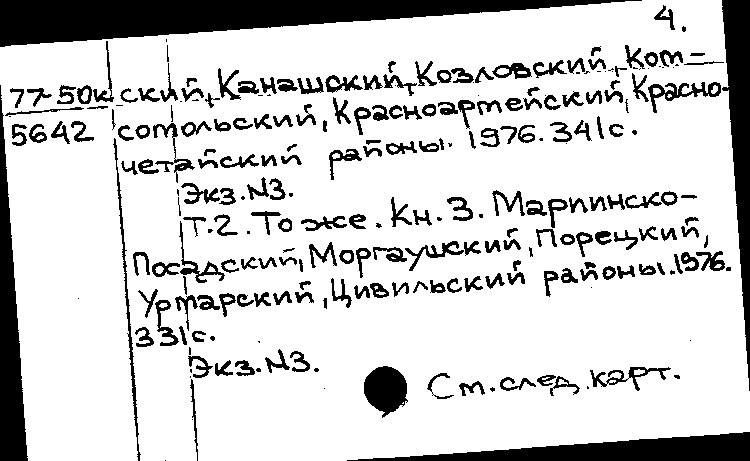 4.
77-50к ский, Канашский, Козловский, Ком-
5642 сомольский, Красноармейский, Красно-
четайский районы. 1976. 341с.
Экз. №3.
Т.2. То же. Кн. 3. Мариинско-
Посадский, Моргаушский, Порецкий,
Урмарский, Цивильский районы. 1976.
331с.
Экз. №3.
См. след. карт.